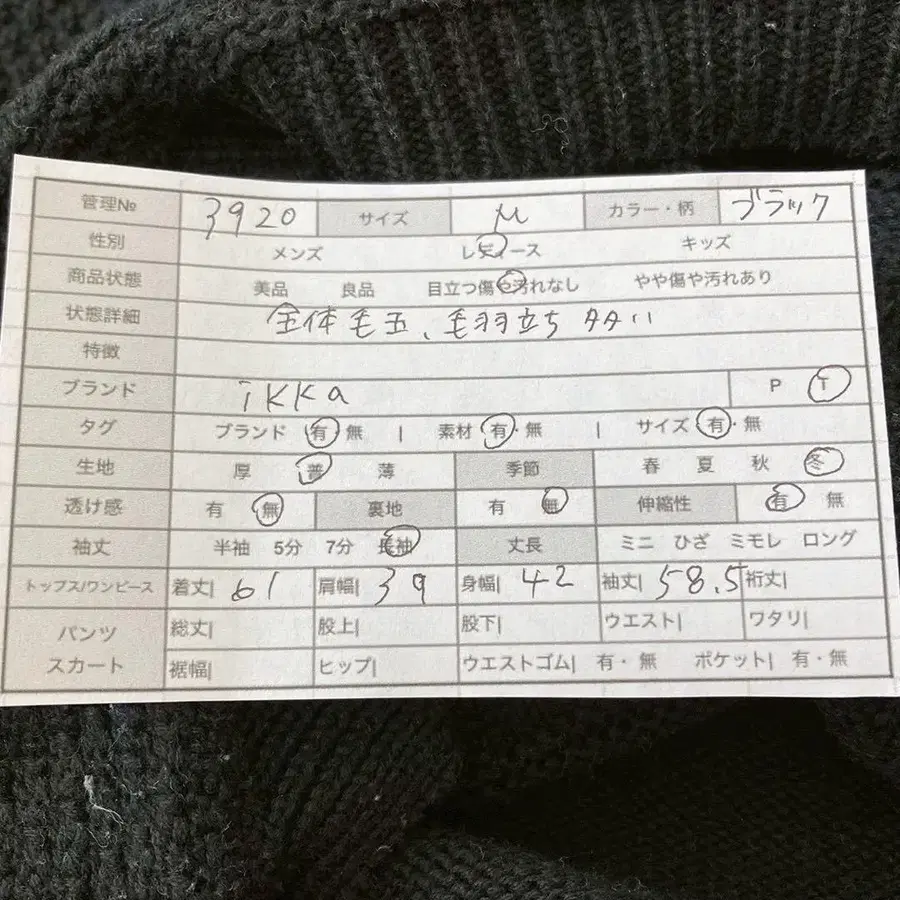 管理№ 3920 サイズ M カラー・柄 ブラック
性別 メンズ レディース キッズ
商品状態 美品 良品 目立つ傷や汚れなし やや傷や汚れあり
状態詳細 全体毛玉、毛羽立ち多い
特徴
ブランド ikka P T
タグ ブランド 有・無 | 素材 有・無 | サイズ 有・無
生地 厚 普 薄 季節 春 夏 秋 冬
透け感 有 無 裏地 有 無 伸縮性 有 無
袖丈 半袖 5分 7分 長袖 丈長 ミニ ひざ ミモレ ロング
トップス/ワンピース 着丈| 61 肩幅| 39 身幅| 42 袖丈| 58.5 裄丈|
パンツ 総丈| 股上| 股下| ウエスト| ワタリ|
スカート 裾幅| ヒップ| ウエストゴム| 有・無 ポケット| 有・無